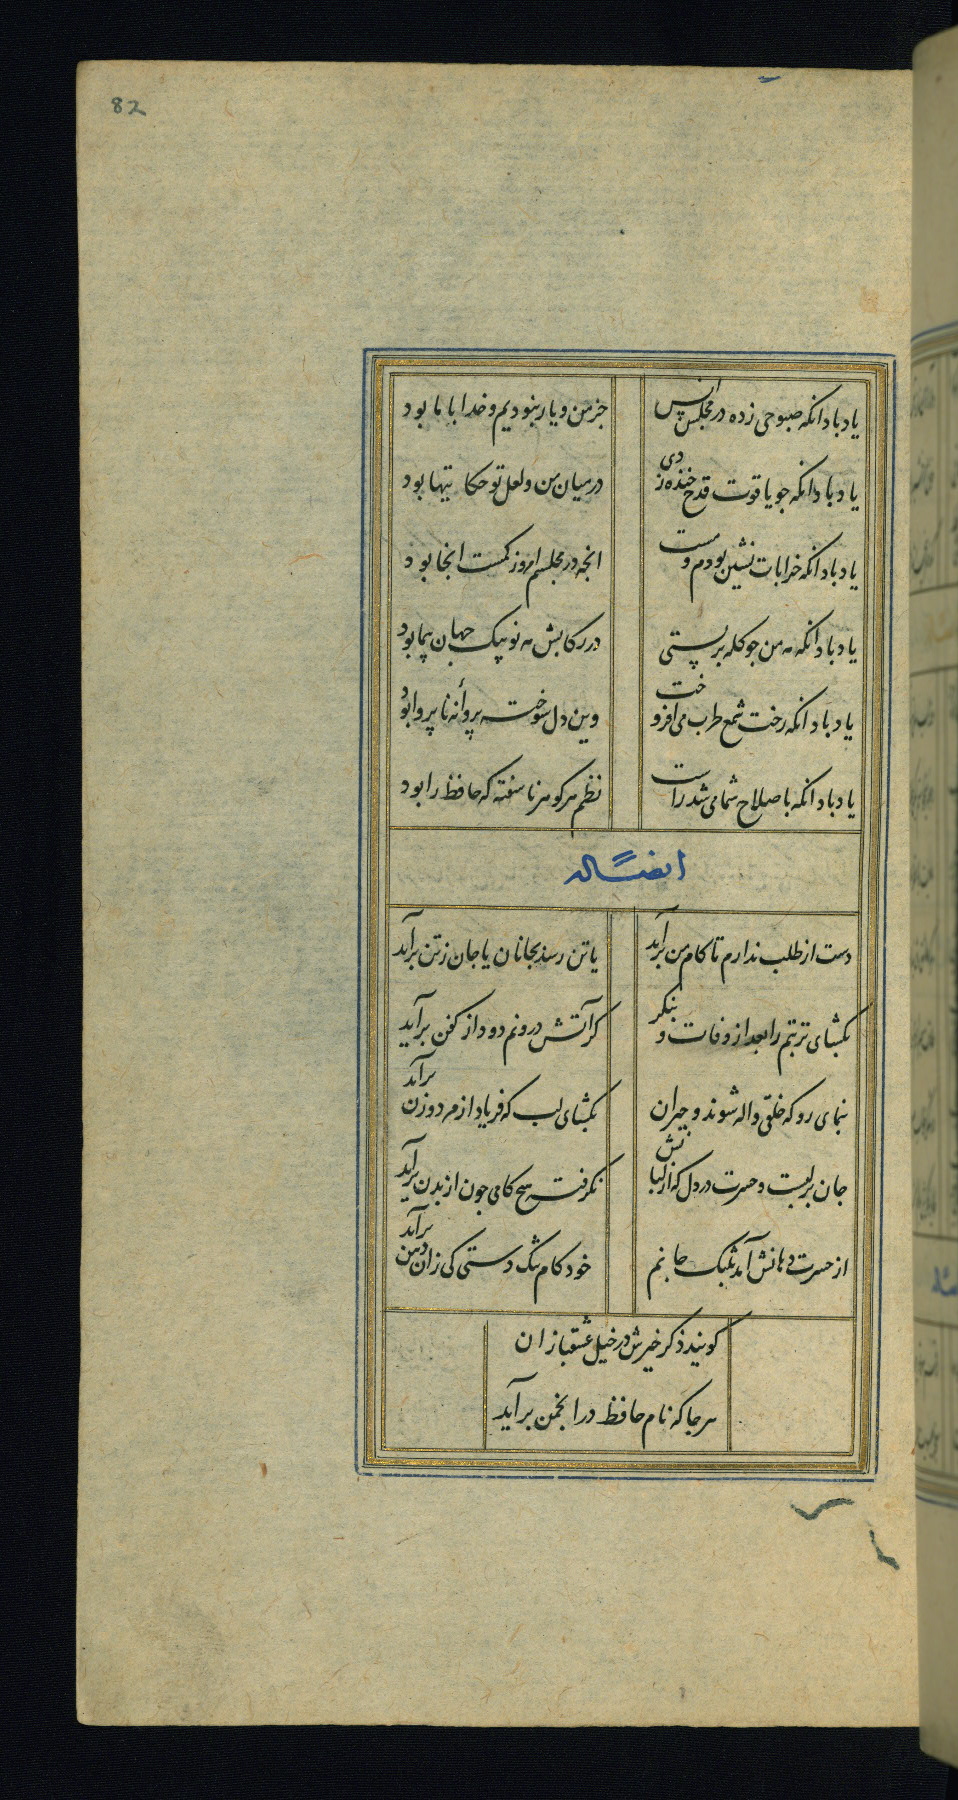 82
یاد باد انکه صبوحی زده در مجلس انس
جز من و یار نبودیم و خدا با ما بود
یاد باد انکه جو یاقوت قدح خنده زدی
در میان من و لعل تو حکایتها بود
یاد باد انکه خرابات نشین بودم و مست
انجه در مجلسم امروز کمست انجا بود
یاد باد انکه مه من جو کله بر بستی
در رکابش مه نو پیک جهان پیما بود
یاد باد انکه رخت شمع طرب می افروخت
وین دل سوخته پروانه نا پروا بود
یاد باد انکه باصلاح شما می شد راست
نظم هر کوهر ناسفته که حافظ را بود
ایضا له
دست از طلب ندارم تا کام من برآید
یا تن رسد بجانان یا جان ز تن برآید
بکشای تربتم را بعد از وفات و بنکر
کز آتش درونم دود از کفن برآید
بنمای رو که خلقی واله شوند و حیران
بکشای لب که فریاد از مرد و زن برآید
جان بر لبست و حسرت در دل که از لبانش
نکرفته هیچ کامی جون از بدن برآید
از حسرت دهانش آمد بتنک جانم
خود کام تنک دستی کی زان دهن برآید
کویند ذکر خیرش در خیل عشقبازان
هر جا که نام حافظ در انجمن برآید